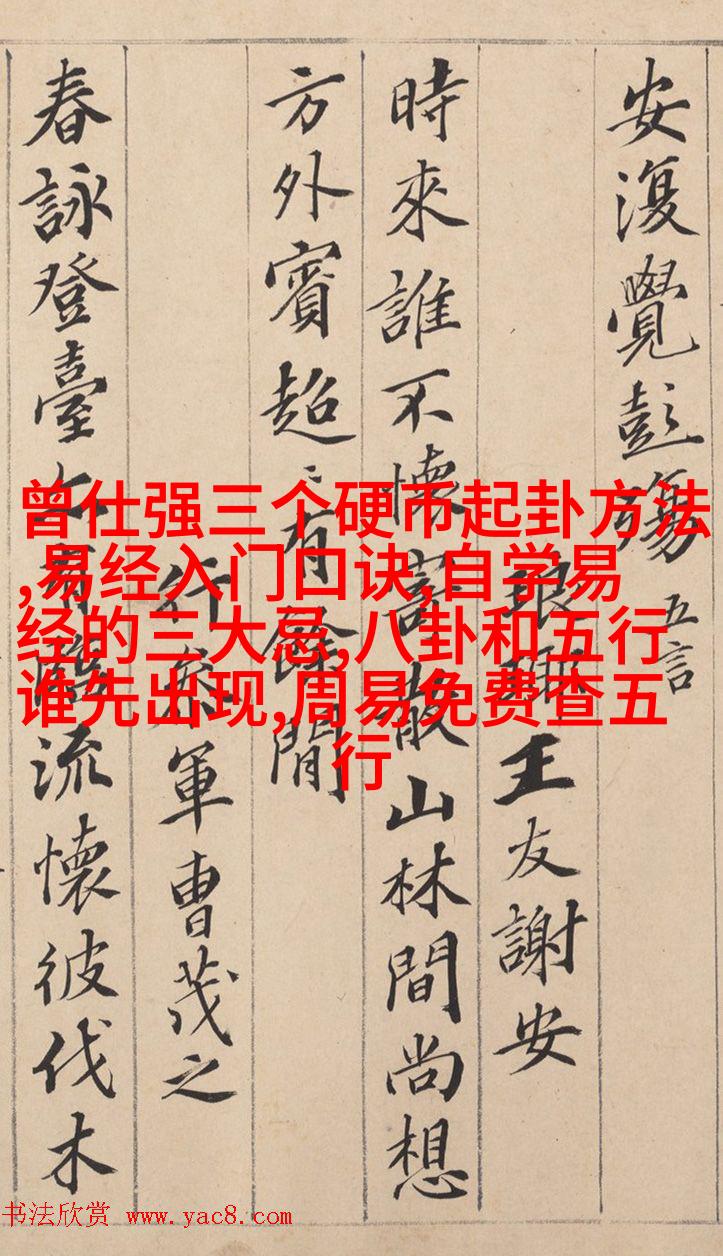 安復覺彭殤 五言
琅琊王友謝安
時來誰不懷寄散山林間尚想
方外賓超〻有餘閒
行參軍曹茂之
春詠登臺亦有臨流懷彼伐木
曾仕强三个硬币起卦方法
,易经入门口诀,自学易
经的三大忌,八卦和五行
谁先出现,周易免费查五
行
书法欣赏 www.yac8.com